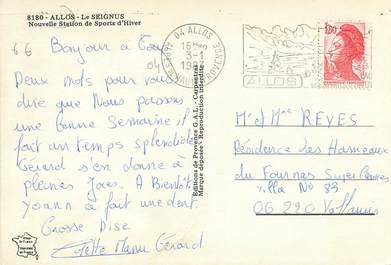 8180 - ALLOS - Le SEIGNUS
Nouvelle Station de Sports d'Hiver
66
04
Bonjour à Tous
Deux mots pour vous
dire que Nous passons
une bonne Semaine il
fait un temps splendide
Gérard s'en donne à
pleines Joies A Bientôt
Yoann a fait une dent.
Grosse Bise
Manu Gérard
Editions de Provence G.A.L. - Carpentras
Marque déposée - Reproduction interdite
04 ALLOS
16H
3-1
ALLOS
1,80
Mr et Mme REVES
Résidence les Hameaux
du Fournas Super Cannes
villa No 83
06 220 Vallauris